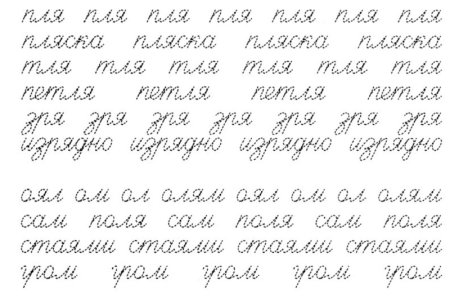 пля пля пля пля пля пля пля
пляска пляска пляска пляска
тля тля тля тля тля тля
петля петля петля петля
зря зря зря зря зря зря зря
изрядно изрядно изрядно изрядно
оял ом ол олям оял ом ол олям
сам поля сам поля сам поля
стаями стаями стаями стаями
гром гром гром гром гром